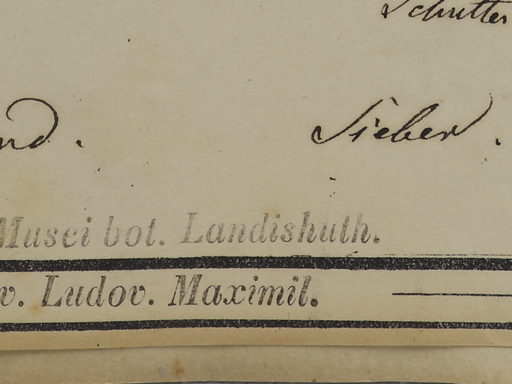 Schulter
nd. Sieber.
Musei bot. Landishuth.
v. Ludov. Maximil.